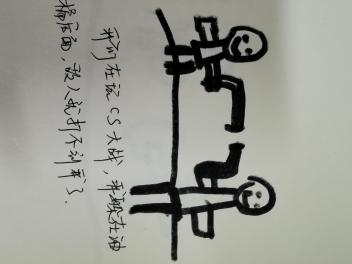 我们在玩CS大战，我躲在油
桶后面，敌人就打不到我了．